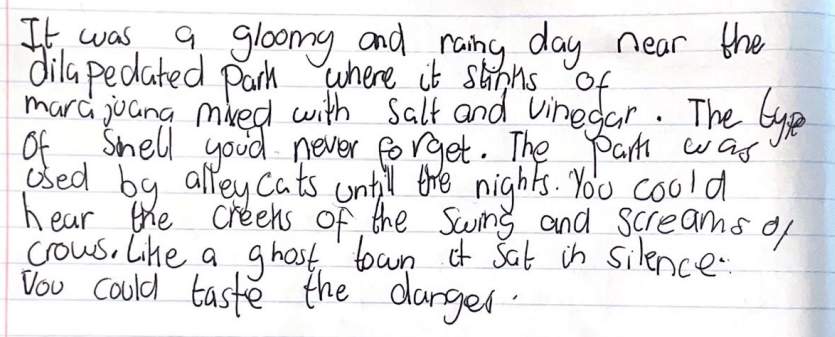 It was a gloomy and rainy day near the
dilapedated Park where it stinks of
marajuana mixed with salt and vinegar. The type
of smell youd never forget. The park was
used by alley cats untill the nights. You could
hear the creeks of the swing and screams of
crows. Like a ghost town it sat in silence.
You could taste the danger.